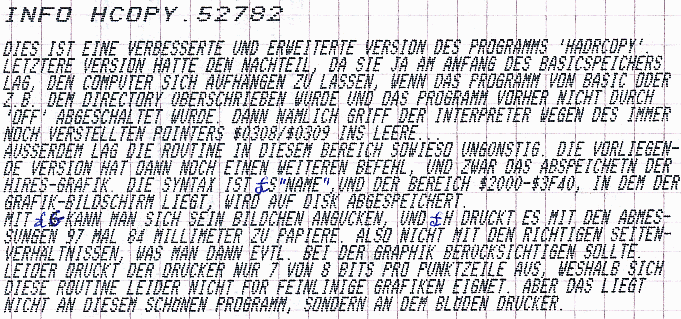 INFO HCOPY.52782
DIES IST EINE VERBESSERTE UND ERWEITERTE VERSION DES PROGRAMMS 'HADRCOPY'.
LETZTERE VERSION HATTE DEN NACHTEIL, DA SIE JA AM ANFANG DES BASICSPEICHERS
LAG, DEN COMPUTER SICH AUFHANGEN ZU LASSEN, WENN DAS PROGRAMM VON BASIC ODER
Z.B. DEM DIRECTORY UBERSCHRIEBEN WURDE UND DAS PROGRAMM VORHER NICHT DURCH
'OFF' ABGESCHALTET WURDE. DANN NAMLICH GRIFF DER INTERPRETER WEGEN DES IMMER
NOCH VERSTELLTEN POINTERS $0308/$0309 INS LEERE...
AUSSERDEM LAG DIE ROUTINE IN DIESEM BEREICH SOWIESO UNGONSTIG. DIE VORLIEGEN-
DE VERSION HAT DANN NOCH EINEN WEITEREN BEFEHL, UND ZWAR DAS ABSPEICHETN DER
HIRES-GRAFIK. DIE SYNTAX IST £S"NAME", UND DER BEREICH $2000-$3F40, IN DEM DER
GRAFIK-BILDSCHIRM LIEGT, WIRD AUF DISK ABGESPEICHERT.
MIT £G KANN MAN SICH SEIN BILDCHEN ANGUCKEN, UND £H DRUCKT ES MIT DEN ABMES-
SUNGEN 97 MAL 84 MILLIMETER ZU PAPIERE. ALSO NICHT MIT DEN RICHTIGEN SEITEN-
VERHALTNISSEN, WAS MAN DANN EVTL. BEI DER GRAPHIK BEROCKSICHTIGEN SOLLTE.
LEIDER DRUCKT DER DRUCKER NUR 7 VON 8 BITS PRO PUNKTZEILE AUS, WESHALB SICH
DIESE ROUTINE LEIDER NICHT FOR FEINLINIGE GRAFIKEN EIGNET. ABER DAS LIEGT
NICHT AN DIESEM SCHONEN PROGRAMM, SONDERN AN DEM BLODEN DRUCKER.